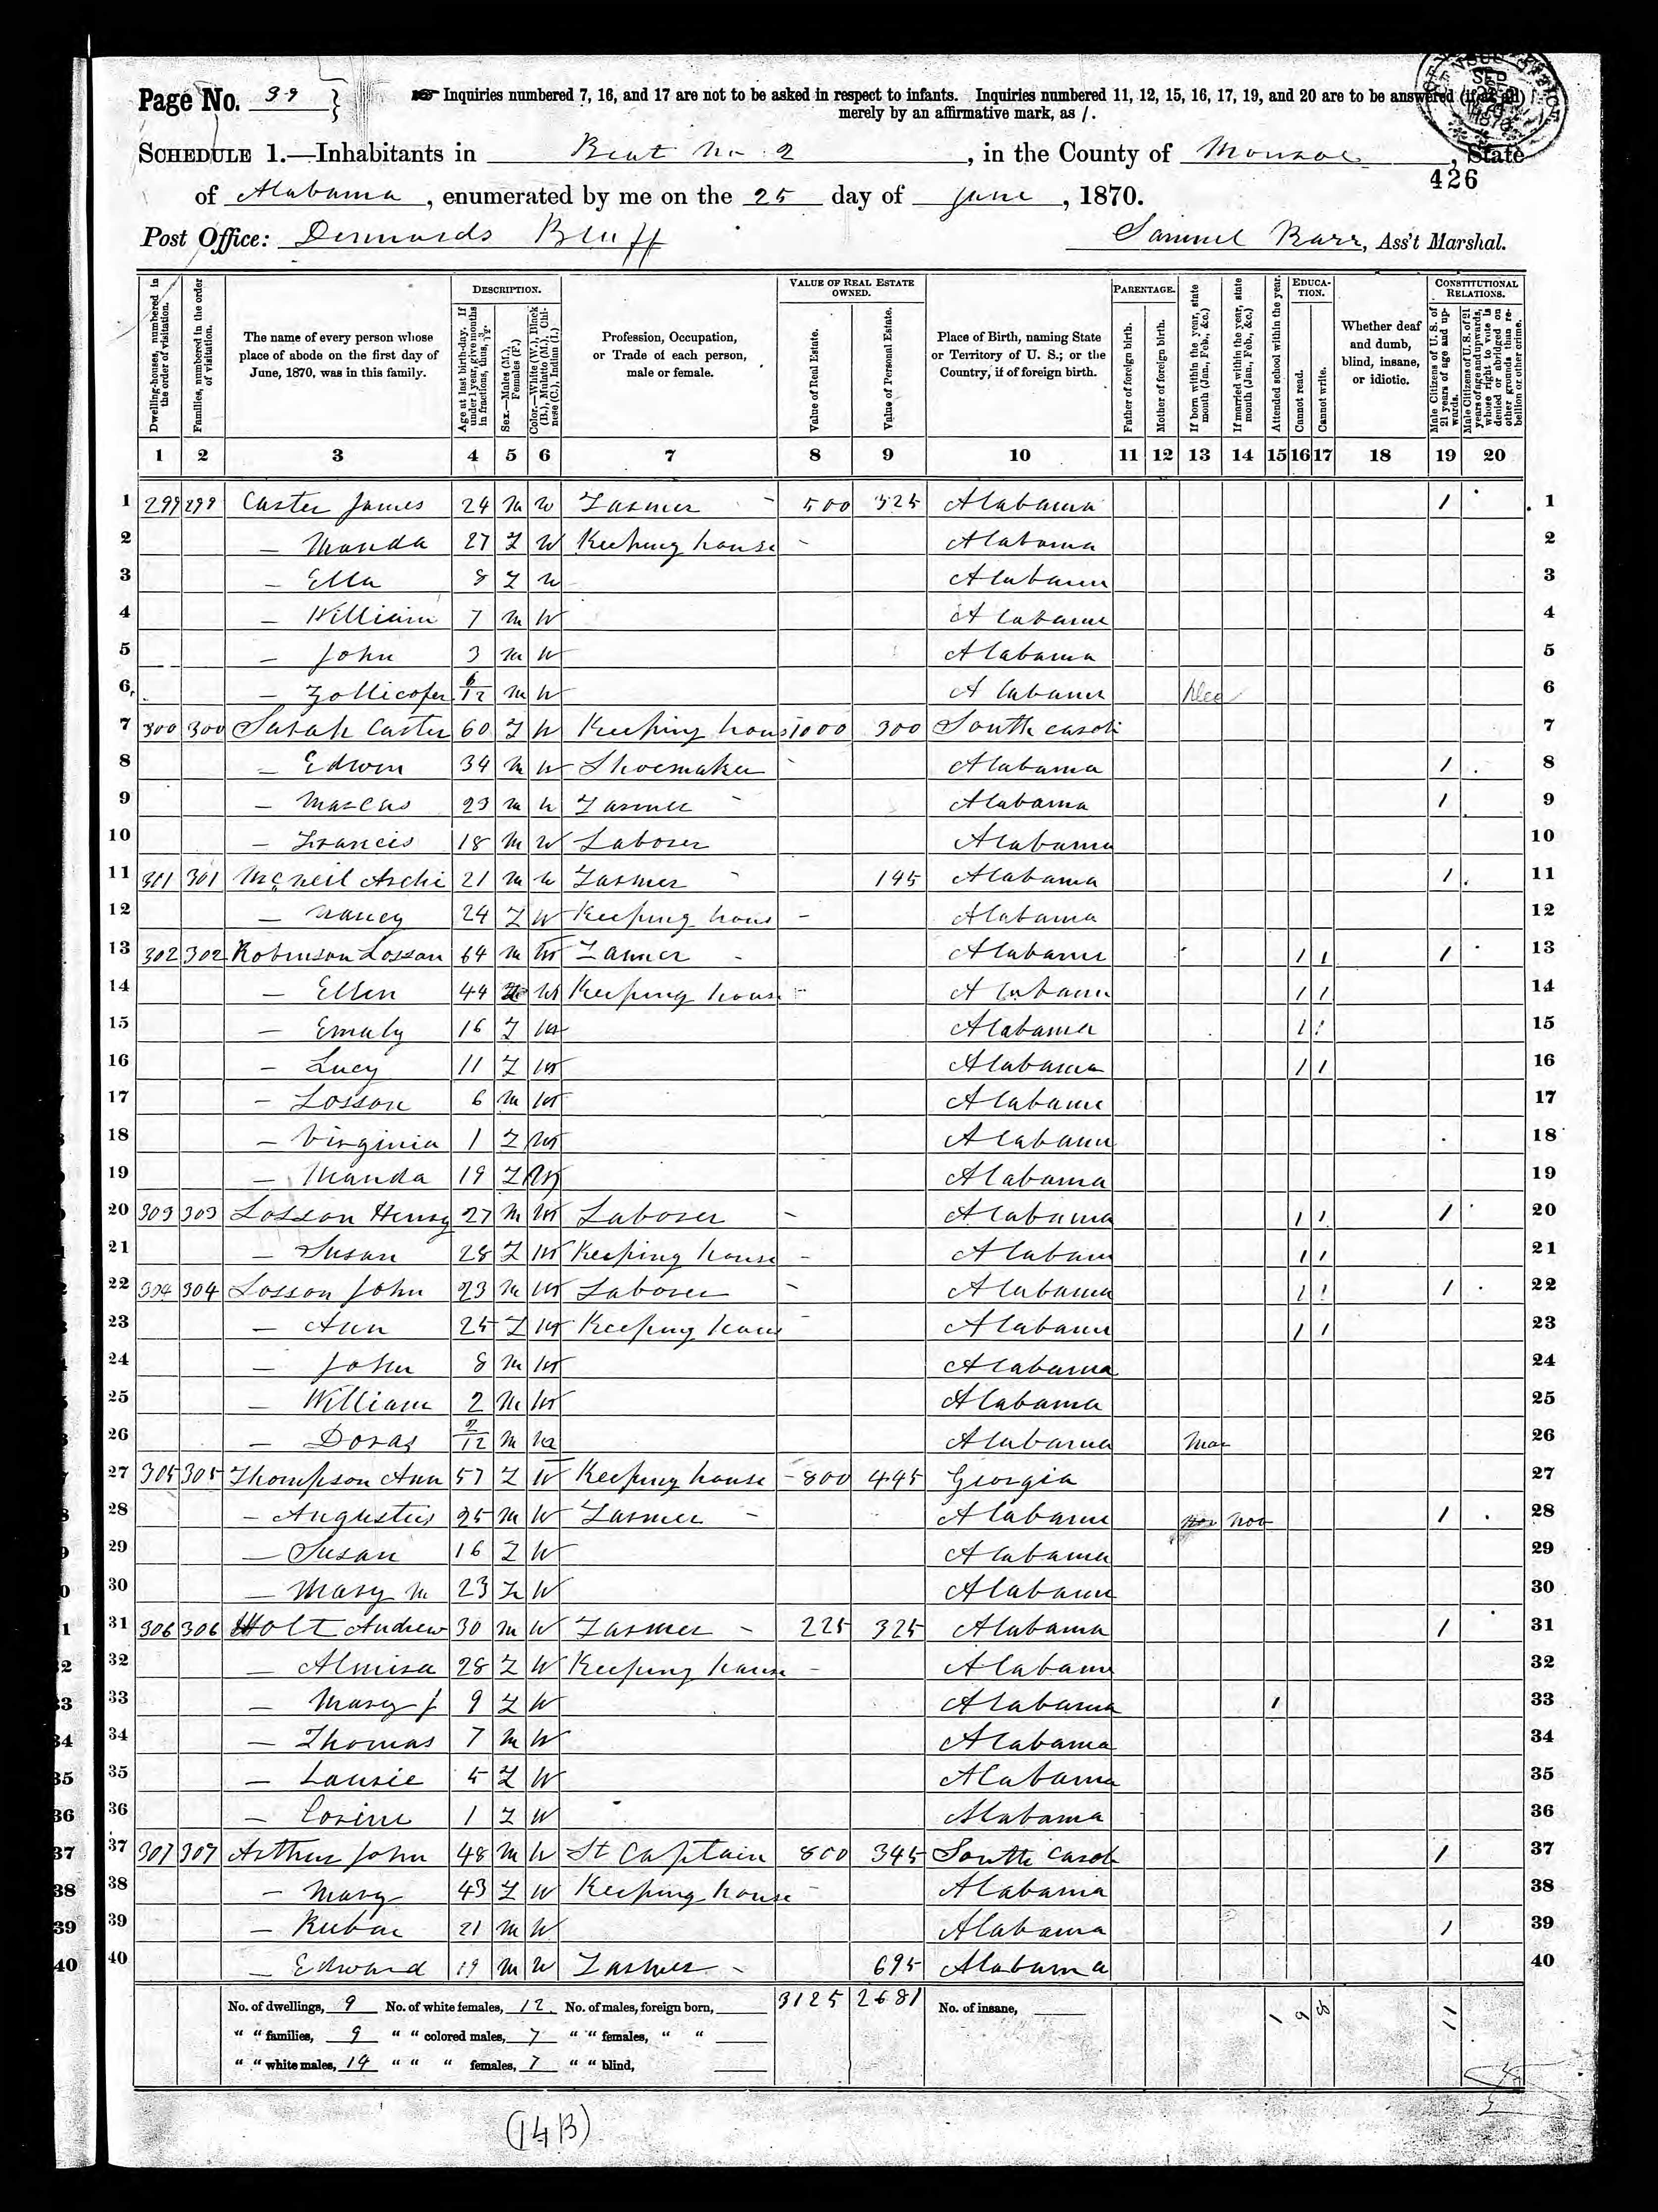 Page No. 39
Inquiries numbered 7, 16, and 17 are not to be asked in respect to infants. Inquiries numbered 11, 12, 15, 16, 17, 19, and 20 are to be answered (if at all)
merely by an affirmative mark, as /.
SCHEDULE 1.—Inhabitants in Beat No 2, in the County of Monroe, State
426
of Alabama, enumerated by me on the 25 day of June, 1870.
Post Office: Bluff Samuel Barr, Ass't Marshal.
Dwelling-houses, numbered in the order of visitation.
Families, numbered in the order of visitation.
The name of every person whose place of abode on the first day of June, 1870, was in this family.
DESCRIPTION.
Age at last birth-day. If under 1 year, give months in fractions, thus, 3/12.
Sex.—Males (M.), Females (F.)
Color.—White (W.), Black (B.), Mulatto (M.), Chinese (C.), Indian (I.)
Profession, Occupation, or Trade of each person, male or female.
VALUE OF REAL ESTATE OWNED.
Value of Real Estate.
Value of Personal Estate.
Place of Birth, naming State or Territory of U. S.; or the Country, if of foreign birth.
PARENTAGE.
Father of foreign birth.
Mother of foreign birth.
If born within the year, state month (Jan., Feb., &c.)
If married within the year, state month (Jan., Feb., &c.)
Attended school within the year.
EDUCATION.
Cannot read.
Cannot write.
Whether deaf and dumb, blind, insane, or idiotic.
CONSTITUTIONAL RELATIONS.
Male Citizens of U. S. of 21 years of age and upwards.
Male Citizens of U. S. of 21 years of age and upwards, whose right to vote is denied or abridged on other grounds than rebellion or other crime.
1 2 3 4 5 6 7 8 9 10 11 12 13 14 15 16 17 18 19 20
1 299 299 Carter James 24 M W Farmer - 500 325 Alabama / 1
2 — Manda 27 F W Keeping house - Alabama 2
3 — Ella 8 F W Alabama 3
4 — William 7 M W Alabama 4
5 — John 3 M W Alabama 5
6 — Zollicofer 6/12 M W Alabama Dec 6
7 300 300 Sarah Carter 60 F W Keeping hous 1000 300 South caroli 7
8 — Edwin 34 M W Shoemaker - Alabama / 8
9 — Marcus 23 M W Farmer - Alabama / 9
10 — Francis 18 M W Laborer Alabama 10
11 301 301 McNeil Archi 21 M W Farmer - 195 Alabama / 11
12 — Nancy 24 F W Keeping hous - Alabama 12
13 302 302 Robinson Losson 64 M Farmer - Alabama / / / 13
14 — Ellen 44 Keeping house Alabama / / 14
15 — Emaly 16 F Alabama / / 15
16 — Lucy 11 F Alabama / / 16
17 — Losson 6 M Alabama 17
18 — Virginia 1 F Alabama 18
19 — Manda 19 F Alabama 19
20 303 303 Losson Henry 27 M Laborer - Alabama / / / 20
21 — Susan 28 F Keeping house - Alabam 21 / /
22 304 304 Losson John 23 M Laborer - Alabama / / / 22
23 — Ann 25 F Keeping hous - Alabama / / 23
24 — John 8 M Alabama 24
25 — William 2 M Alabama 25
26 — 2/12 M Alabama Mar 26
27 305 305 Thompson Ann 57 F W Keeping house - 800 445 Georgia 27
28 — Augustus 25 M W Farmer - Alabama Nov / 28
29 — Susan 16 F W Alabama 29
30 — Mary M 23 F W Alabama 30
31 306 306 Holt Andrew 30 M W Farmer - 225 325 Alabama / 31
32 — Almira 28 F W Keeping house - Alabama 32
33 — Mary J 9 F W Alabama / 33
34 — Thomas 7 M W Alabama 34
35 — Laurie 5 F W Alabama 35
36 — Corine 1 F W Alabama 36
37 307 307 Arthur John 48 M W St Captain 800 345 South Carol / 37
38 — Mary 43 F W Keeping house - Alabama 38
39 — Ruban 21 M W Alabama / 39
40 — Edward 19 M W Farmer - 695 Alabama 40
No. of dwellings, 9 No. of white females, 12 No. of males, foreign born, 3125 2681 No. of insane, 1 9 8 11
" " families, 9 " " colored males, 7 " " females, " "
" " white males, 14 " " " females, 7 " " blind,
(14B)